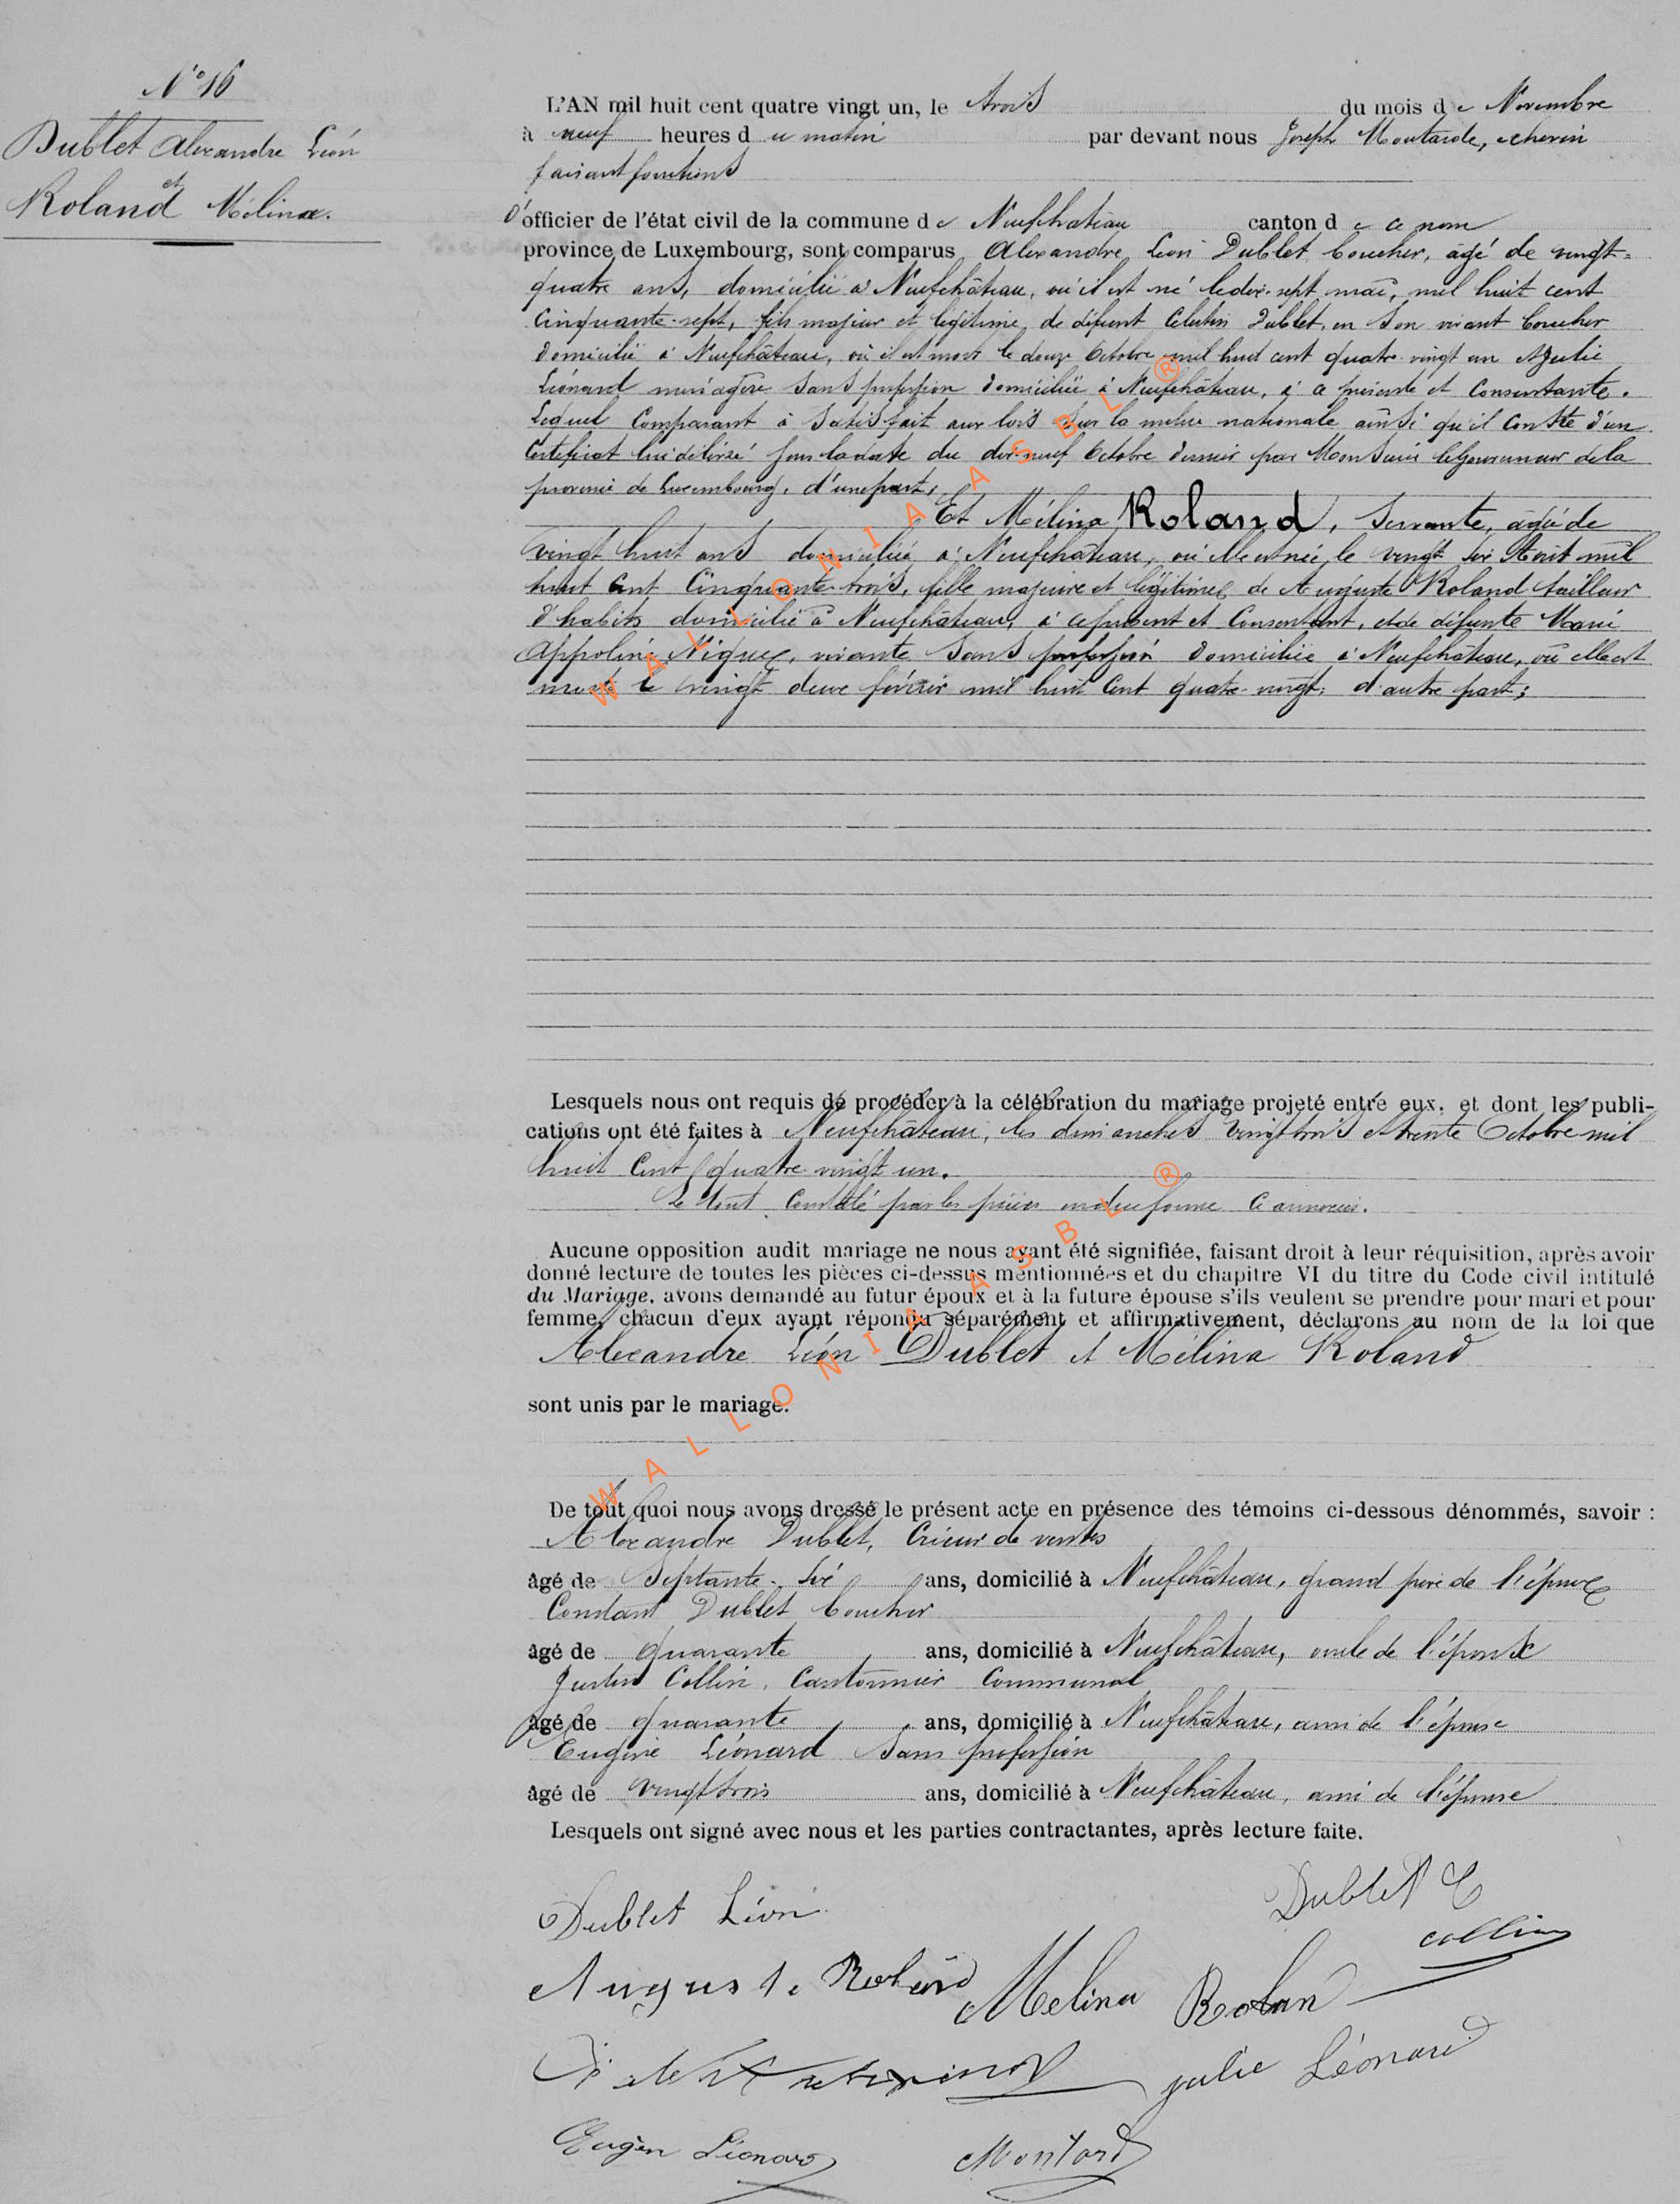 N° 16
Dublet Alexandre Léon
et
Roland Mélina.
L'AN mil huit cent quatre vingt un, le trois du mois de Novembre
à neuf heures du matin par devant nous Joseph Moutarde, échevin
faisant fonctions
d'officier de l'état civil de la commune de Neufchateau canton de ce nom
province de Luxembourg, sont comparus Alexandre Léon Dublet boucher, âgé de vingt-
quatre ans, domicilié à Neufchâteau, où il est né le dix-sept mai, mil huit cent
cinquante-sept, fils majeur et légitime de défunt Célestin Dublet, en son vivant boucher
domicilié à Neufchâteau, où il est mort le douze Octobre mil huit cent quatre-vingt un et Julie
Léonard ménagère sans profession domiciliée à Neufchâteau, à ce présente et consentante.
Lequel comparant a satisfait aux lois sur la milice nationale ainsi qu'il conste d'un
certificat lui délivré sous la date du dix-neuf Octobre dernier par Monsieur le Gouverneur de la
province de Luxembourg, d'une part,
Et Mélina Roland, servante, âgée de
vingt huit ans domiciliée à Neufchâteau, où elle est née le vingt six Août mil
huit cent cinquante-trois, fille majeure et légitime de Auguste Roland tailleur
d'habits domicilié à Neufchâteau, à ce présent et consentant, et de défunte Marie
Appoline Nique, vivante sans profession domiciliée à Neufchâteau, où elle est
morte le vingt deux février mil huit cent quatre-vingt; d'autre part;
Lesquels nous ont requis de procéder à la célébration du mariage projeté entre eux, et dont les publi-
cations ont été faites à Neufchâteau, les dimanches vingt trois et trente Octobre mil
huit cent quatre-vingt un.
Le tout constaté par les pièces en due forme ci annexées.
Aucune opposition audit mariage ne nous ayant été signifiée, faisant droit à leur réquisition, après avoir
donné lecture de toutes les pièces ci-dessus mentionnées et du chapitre VI du titre du Code civil intitulé
du Mariage, avons demandé au futur époux et à la future épouse s'ils veulent se prendre pour mari et pour
femme, chacun d'eux ayant répondu séparément et affirmativement, déclarons au nom de la loi que
Alexandre Léon Dublet et Mélina Roland
sont unis par le mariage.
De tout quoi nous avons dressé le présent acte en présence des témoins ci-dessous dénommés, savoir :
Alexandre Dublet, Crieur de ventes
âgé de Septante-six ans, domicilié à Neufchâteau, grand père de l'époux
Constant Dublet boucher
âgé de quarante ans, domicilié à Neufchâteau, oncle de l'époux
Justin Collin, Cantonnier Communal
âgé de quarante ans, domicilié à Neufchâteau, ami de l'épouse
Eugène Léonard sans profession
âgé de vingt trois ans, domicilié à Neufchâteau, ami de l'épouse
Lesquels ont signé avec nous et les parties contractantes, après lecture faite.
Dublet Léon
Dublet C
collin
Auguste Roland
Melina Rolan
julie Léonard
Eugèn Léonard
Moutard
WALLONIA ASBL ®
WALLONIA ASBL ®